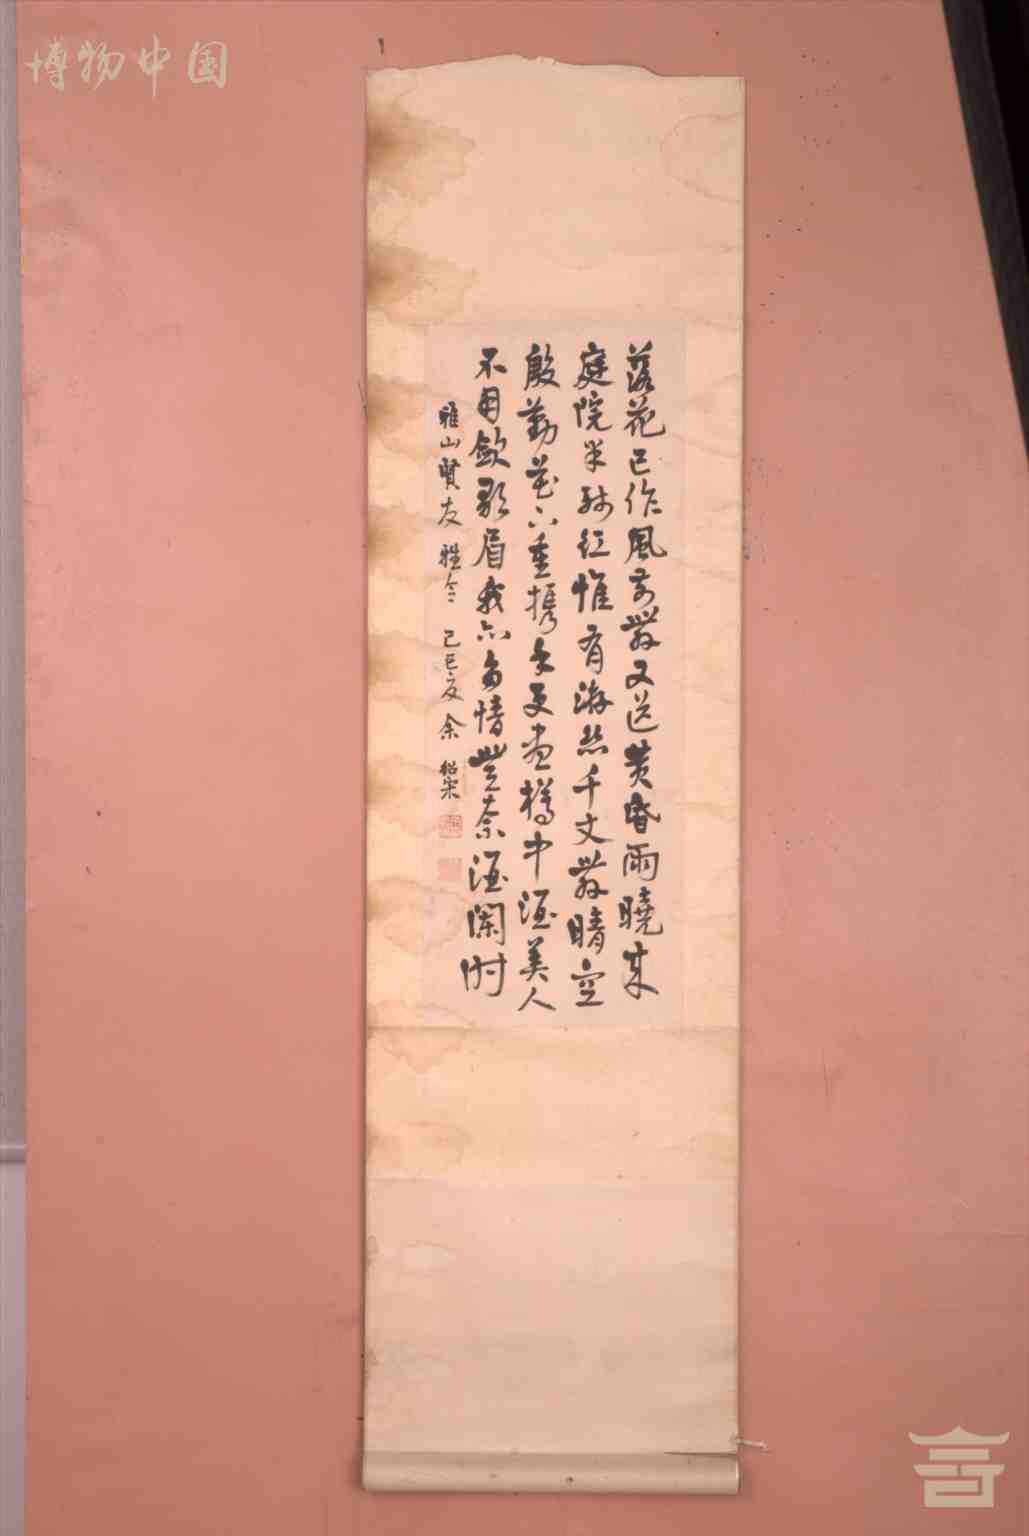 博物中国
落花已作風前舞又送黃昏雨曉來
庭院半殘紅惟有游絲千丈舞晴空
殷勤花下重攜手更盡樽中酒美人
不用斂歌眉我亦多情無奈酒闌時
雅山賢友雅令 己巳夏 余紹宋